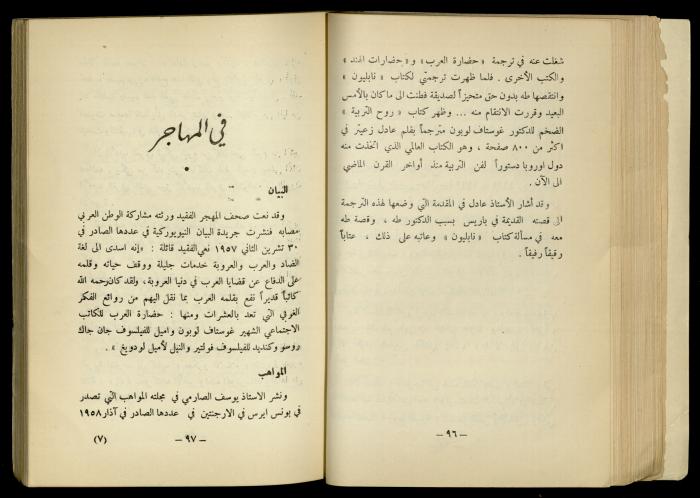 شغلت عنه في ترجمة « حضارة العرب» و« حضارات الهند »
والكتب الأخرى . فلما ظهرت ترجمتي لكتاب « نابليون »
وانتقصها طه بدون حق متحيزاً لصديقة فطنت الى ماكان بالأمس
البعيد وقررت الانتقام منه ... وظهر كتاب « روح التربية »
الضخم للدكتور غوستاف لوبون مترجماً بقلم عادل زعيتر في
اكثر من ٨٠٠ صفحة ، وهو الكتاب العالمي الذي اتخذت منه
دول اوروبا دستوراً لفن التربية منذ أواخر القرن الماضي
الى الآن .
وقد أشار الأستاذ عادل في المقدمة التي وضعها لهذه الترجمة
الى قصته القديمة في باريس بسبب الدكتور طه ، وقصة طه
معه في مسألة كتاب « نابليون » وعاتبه على ذلك ، عتاباً
رقيقاً رفيقاً .
- ٩٦ -
في المهاجر
البيان
وقد نعت صحف المهجر الفقيد ورثته مشاركة الوطن العربي
مصابه فنشرت جريدة البيان النيويوركية في عددها الصادر في
٣٠ تشرين الثاني ١٩٥٧ نعي الفقيد قائلة : « إنه اسدى الى لغة
الضاد والعرب والعروبة خدمات جليلة ووقف حياته وقلمه
على الدفاع عن قضايا العرب في دنيا العروبة، ولقد كان رحمه الله
كاتباً قديراً نفع بقلمه العرب بما نقل اليهم من روائع الفكر
الغربي التي تعد بالعشرات ومنها : حضارة العرب للكاتب
الاجتماعي الشهير غوستاف لوبون واميل للفيلسوف جان جاك
روسو وكنديد للفيلسوف فولتير والنيل لأميل لودويغ » .
المواهب
ونشر الاستاذ يوسف الصارمي في مجلته المواهب التي تصدر
في بونس ايرس في الارجنتين في عددها الصادر في آذار ١٩٥٨
- ٩٧ -
(٧)